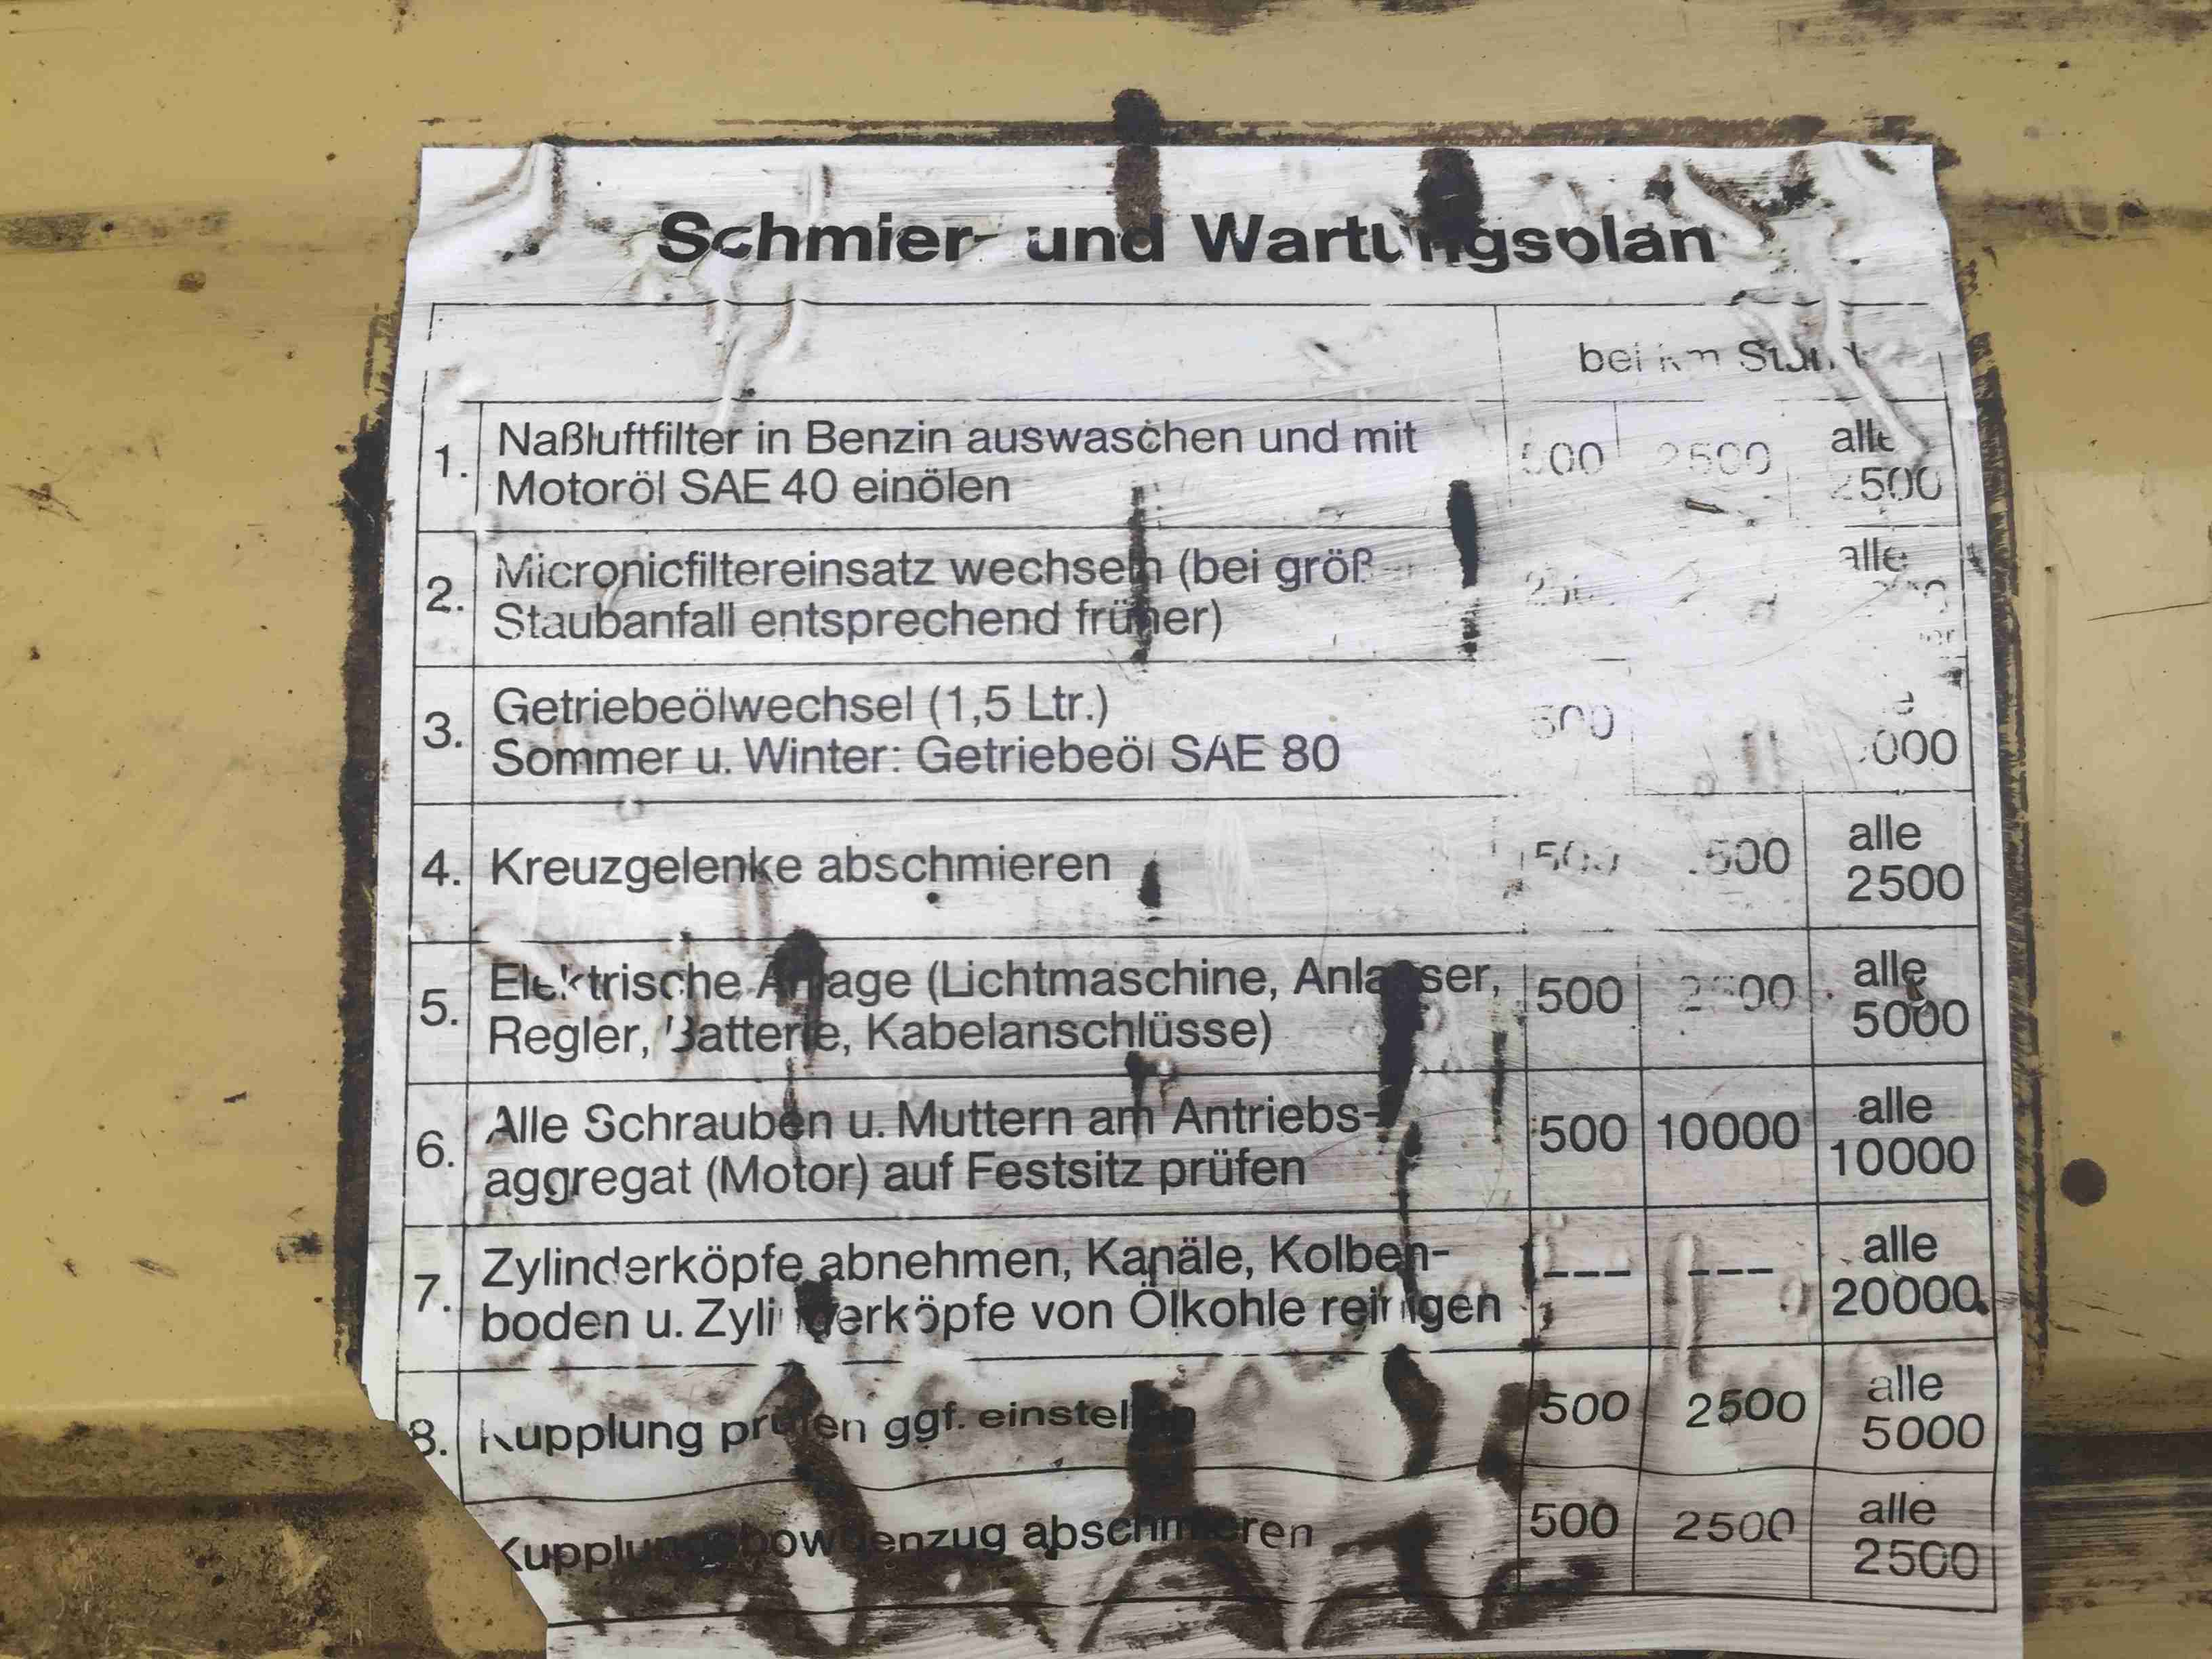 Schmier- und Wartungsplan
bei km Stand
1. Naßluftfilter in Benzin auswaschen und mit
Motoröl SAE 40 einölen
500 2500 alle
2500
2. Micronicfiltereinsatz wechseln (bei
Staubanfall entsprechend früher)
alle
3. Getriebeölwechsel (1,5 Ltr.)
Sommer u. Winter: Getriebeöl SAE 80
500
4. Kreuzgelenke abschmieren
500 2500 alle
2500
5. Elektrische Anlage (Lichtmaschine, Anlasser,
Regler, Batterie, Kabelanschlüsse)
500 2500 alle
5000
6. Alle Schrauben u. Muttern am Antriebs-
aggregat (Motor) auf Festsitz prüfen
500 10000 alle
10000
7. Zylinderköpfe abnehmen, Kanäle, Kolben-
boden u. Zylinderköpfe von Ölkohle reinigen
--- --- alle
20000
8. Kupplung prüfen ggf. einstellen
500 2500 alle
5000
Kupplungsbowdenzug abschmieren
500 2500 alle
2500